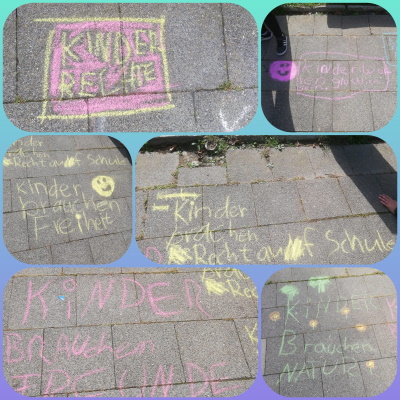 KINDER
RECHTE
Kinder
brauchen
Recht auf Schule
Kinder
brauchen
Freiheit
Kinder
brauchen
Recht auf Schule
KiNDER
BRAUchen
FREUNDE
KiNDER
Brauchen
NATUR